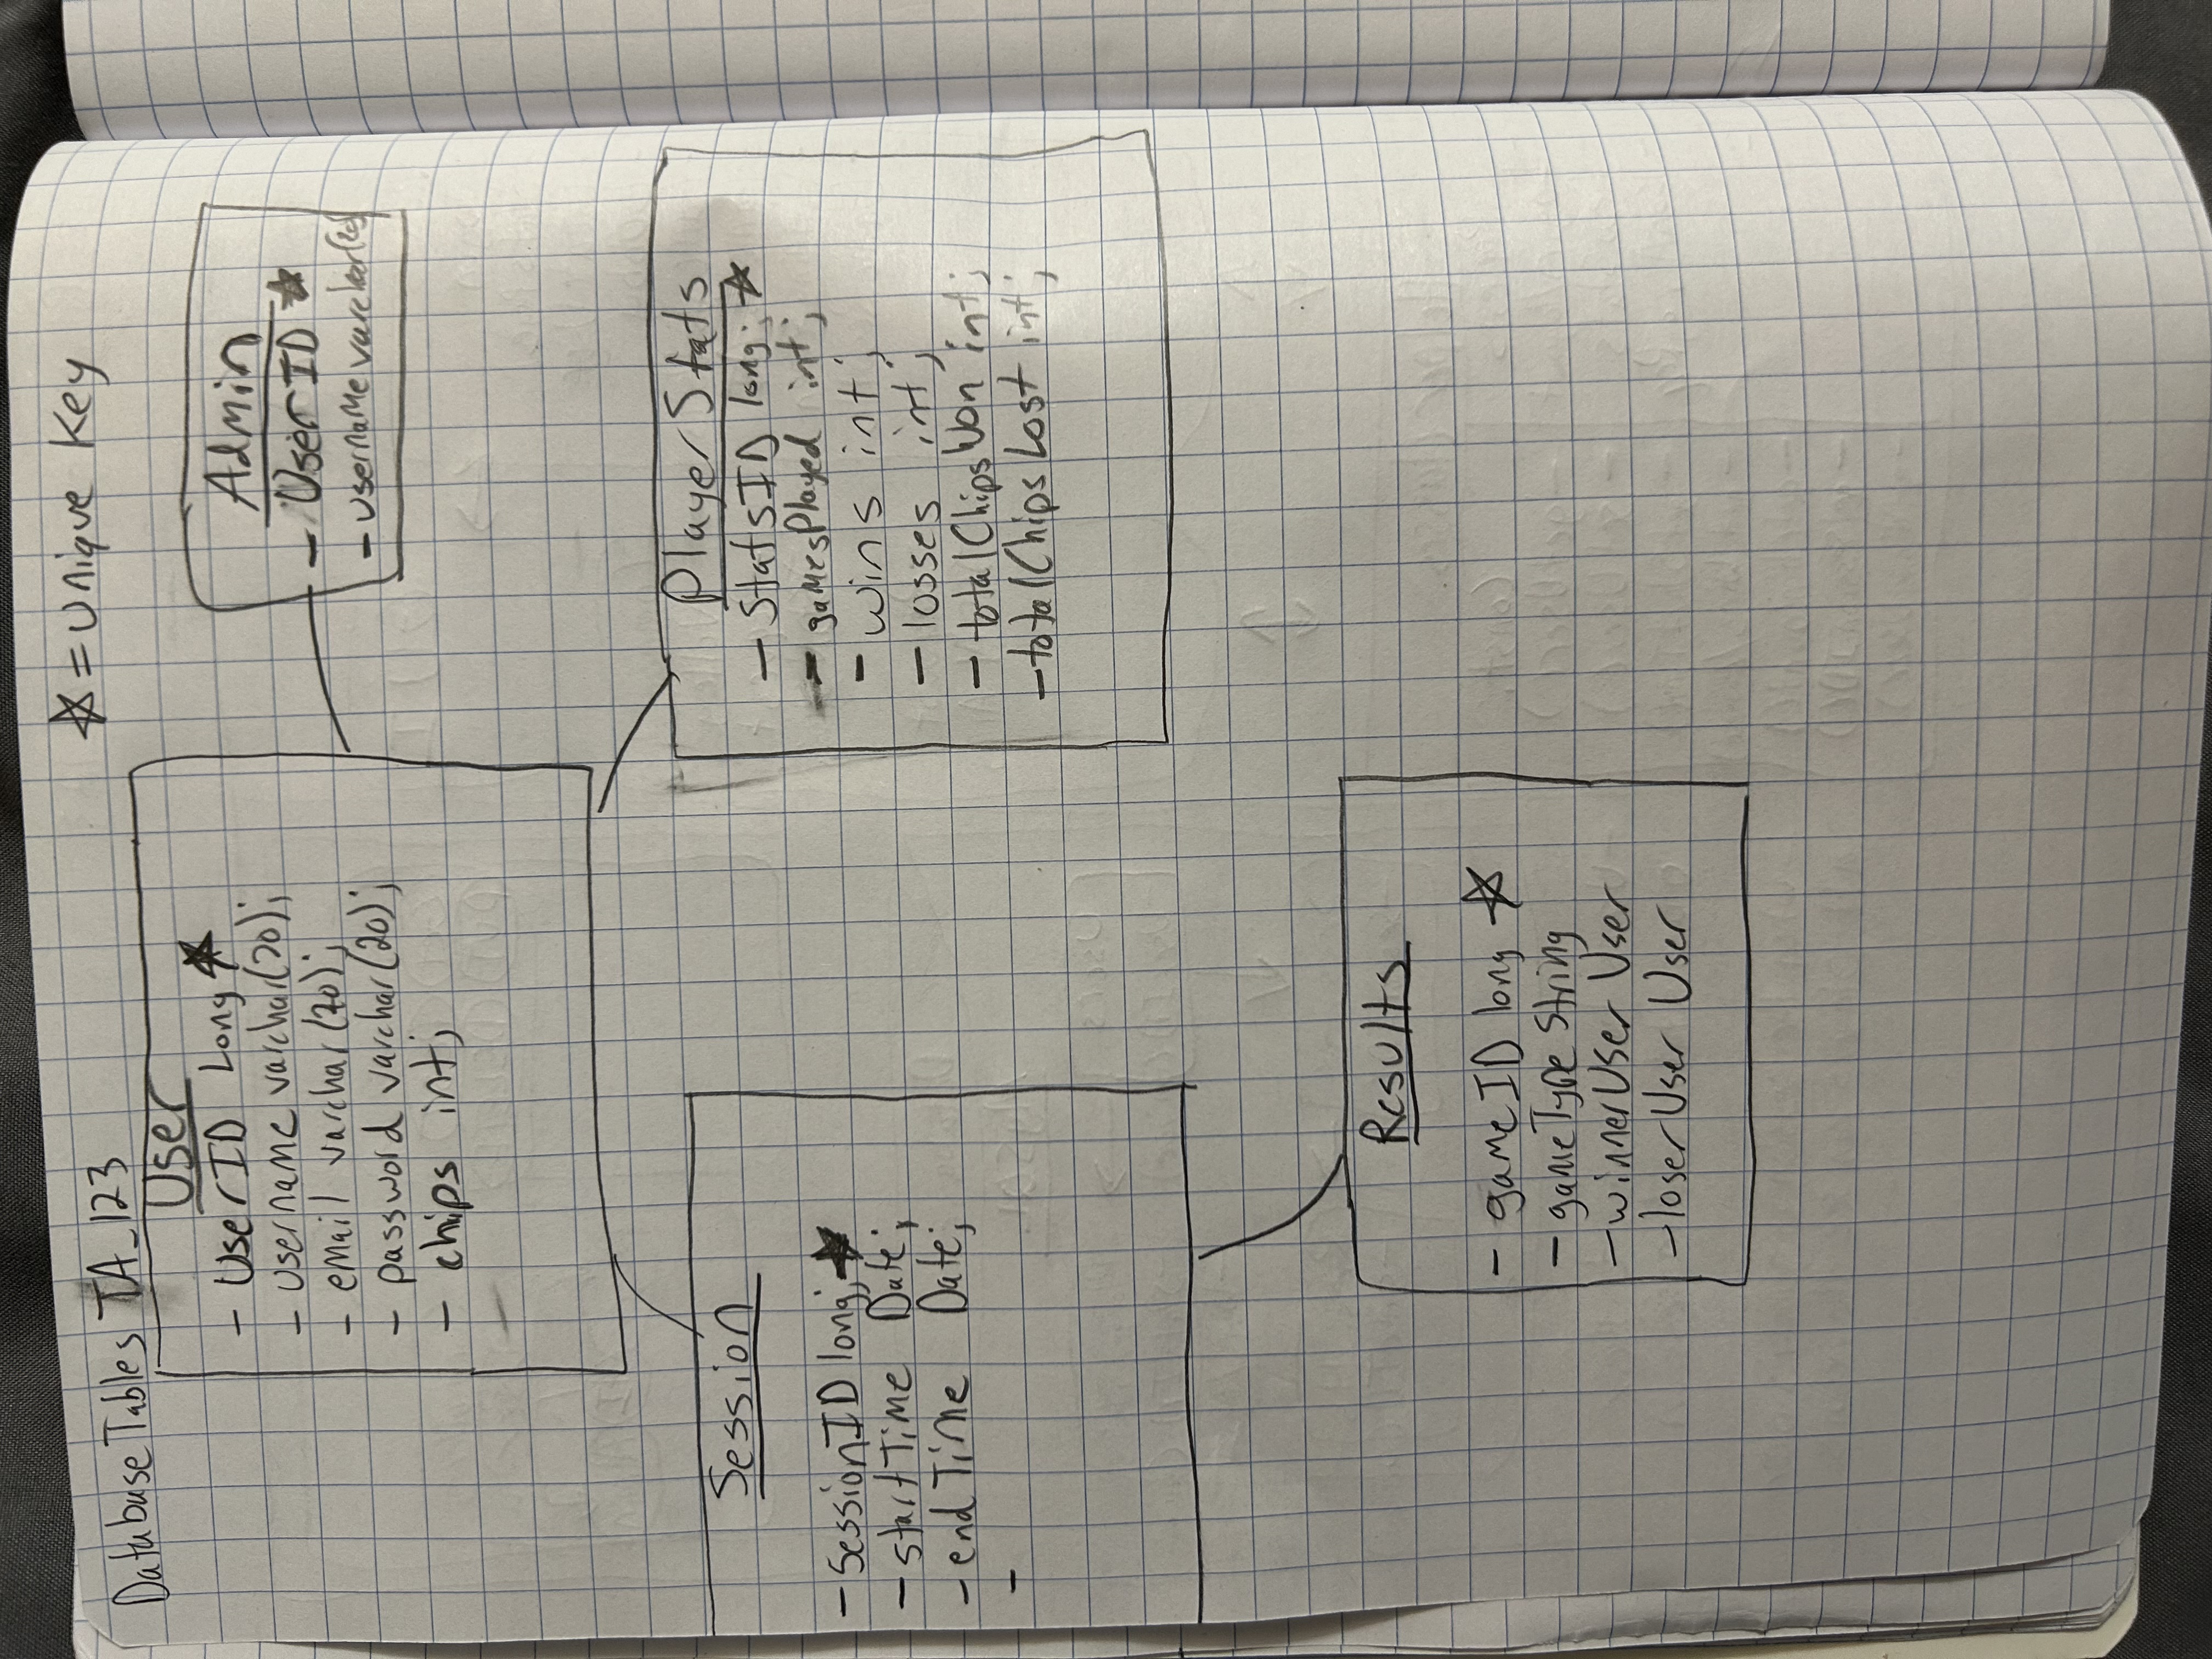 Database Tables TA_123
☆ = Unique Key
User
- UserID Long ★
- username varchar(20);
- email varchar(20);
- password varchar(20);
- chips int;
-
Admin
- UserID ★
- username varchar(20)
Session
- SessionID long; ★
- startTime Date;
- endTime Date;
-
PlayerStats
- StatsID long; ☆
- gamesPlayed int;
- wins int;
- losses int;
- totalChipsWon int;
- totalChipsLost int;
Results
- gameID long ☆
- gameType String
- winnerUser User
- loserUser User